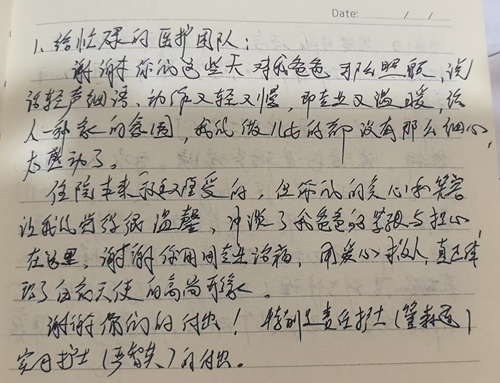 Date: / /
1、给忙碌的医护团队:
谢谢你们这些天对我爸爸那么照顾,说
话轻声细语、动作又轻又慢,即专业又温暖,给
人一种家的氛围,我们做儿女的都没有那么细心,
太感动了。
住院本来就是难受的,但你们的关心和笑容
让我们觉得很温馨,冲淡了我爸爸的紧张与担心,
在这里,谢谢你们用专业治病,用爱心救人,真正体
现了白衣天使的高尚形象。
谢谢你们的付出!特别是责任护士(
实习护士()的付出。